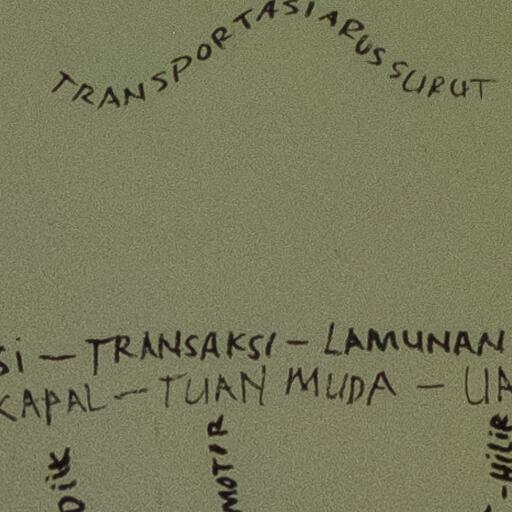 TRANSPORTASI ARUS SURUT
SI – TRANSAKSI – LAMUNAN
KAPAL – TUAN MUDA – UA
DIK
MOTIR
- HILIR